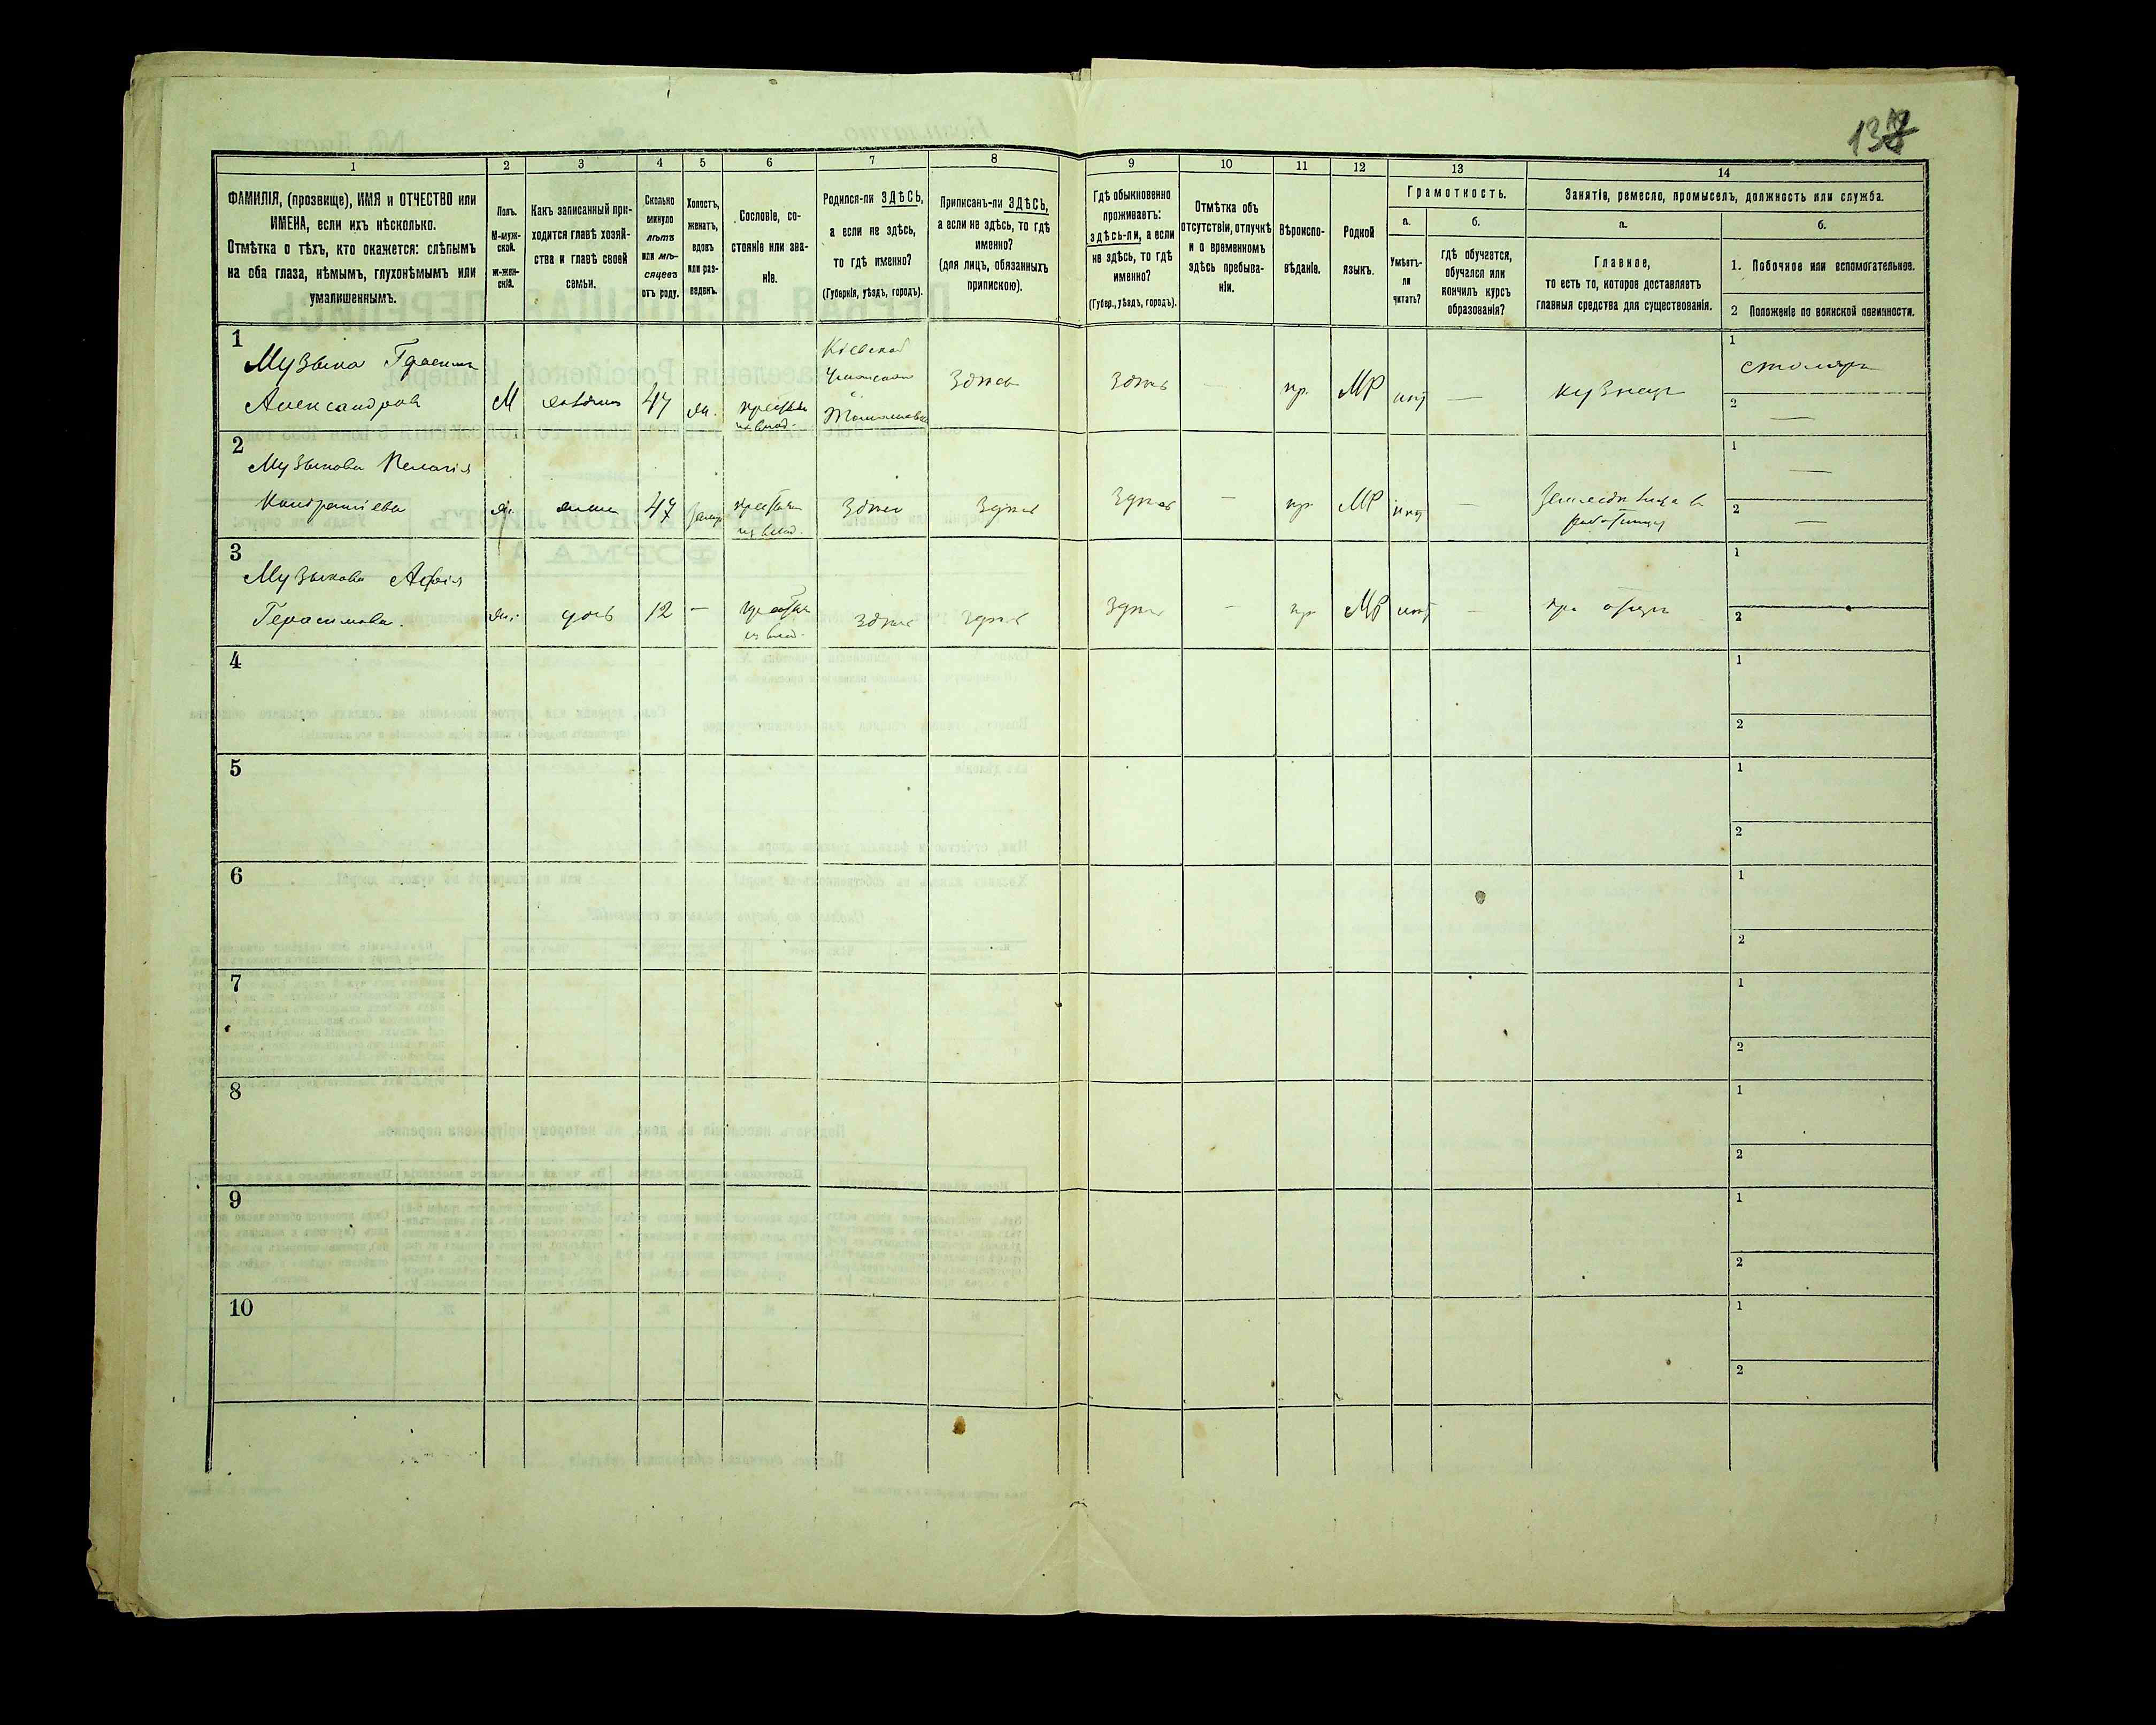 137
1
2
3
4
5
6
7
8
9
10
11
12
13
14
ФАМИЛІЯ, (прозвище), ИМЯ и ОТЧЕСТВО или
ИМЕНА, если ихъ нѣсколько.
Отмѣтка о тѣхъ, кто окажется: слѣпымъ
на оба глаза, нѣмымъ, глухонѣмымъ или
умалишеннымъ.
Полъ.
М-муж-
ской.
ж-жен-
скій.
Какъ записанный при-
ходится главѣ хозяй-
ства и главѣ своей
семьи.
Сколько
минуло
лѣтъ
или мѣ-
сяцевъ
отъ роду.
Холостъ,
женатъ,
вдовъ
или раз-
веденъ.
Сословіе, со-
стояніе или зва-
ніе.
Родился-ли ЗДѢСЬ,
а если не здѣсь,
то гдѣ именно?
(Губернія, уѣздъ, городъ).
Приписанъ-ли ЗДѢСЬ,
а если не здѣсь, то гдѣ
именно?
(для лицъ, обязанныхъ
припискою).
Гдѣ обыкновенно
проживаетъ:
здѣсь-ли, а если
не здѣсь, то гдѣ
именно?
(Губер., уѣздъ, городъ).
Отмѣтка объ
отсутствіи, отлучкѣ
и о временномъ
здѣсь пребыва-
ніи.
Вѣроиспо-
вѣданіе.
Родной
языкъ.
Грамотность.
а.
Умѣетъ-
ли
читать?
б.
гдѣ обучается,
обучался или
кончилъ курсъ
образованія?
Занятіе, ремесло, промыселъ, должность или служба.
а.
Главное,
то есть то, которое доставляетъ
главныя средства для существованія.
б.
1. Побочное или вспомогательное.
2 Положеніе по воинской повинности.
1
Музыка Герасим
Александров
М
хозяин
47
жн.
крестьян
из влад.
Кіевской
Уманской
с.
Здесь
Здесь
—
пр.
МР
нет
—
кузнец
1
столяр
2
—
2
Музыкова Пелагія
Кондратіева
ж.
жена
47
замуж
крестьян
из влад.
Здесь
Здесь
Здесь
—
пр
МР
нет
—
работница
1
—
2
—
3
Музыкова
Герасимова.
ж.
дочь
12
—
крестьян
из влад.
Здесь
Здесь
Здесь
—
пр
МР
нет
—
при отце
1
2
4
1
2
5
1
2
6
1
2
7
1
2
8
1
2
9
1
2
10
1
2